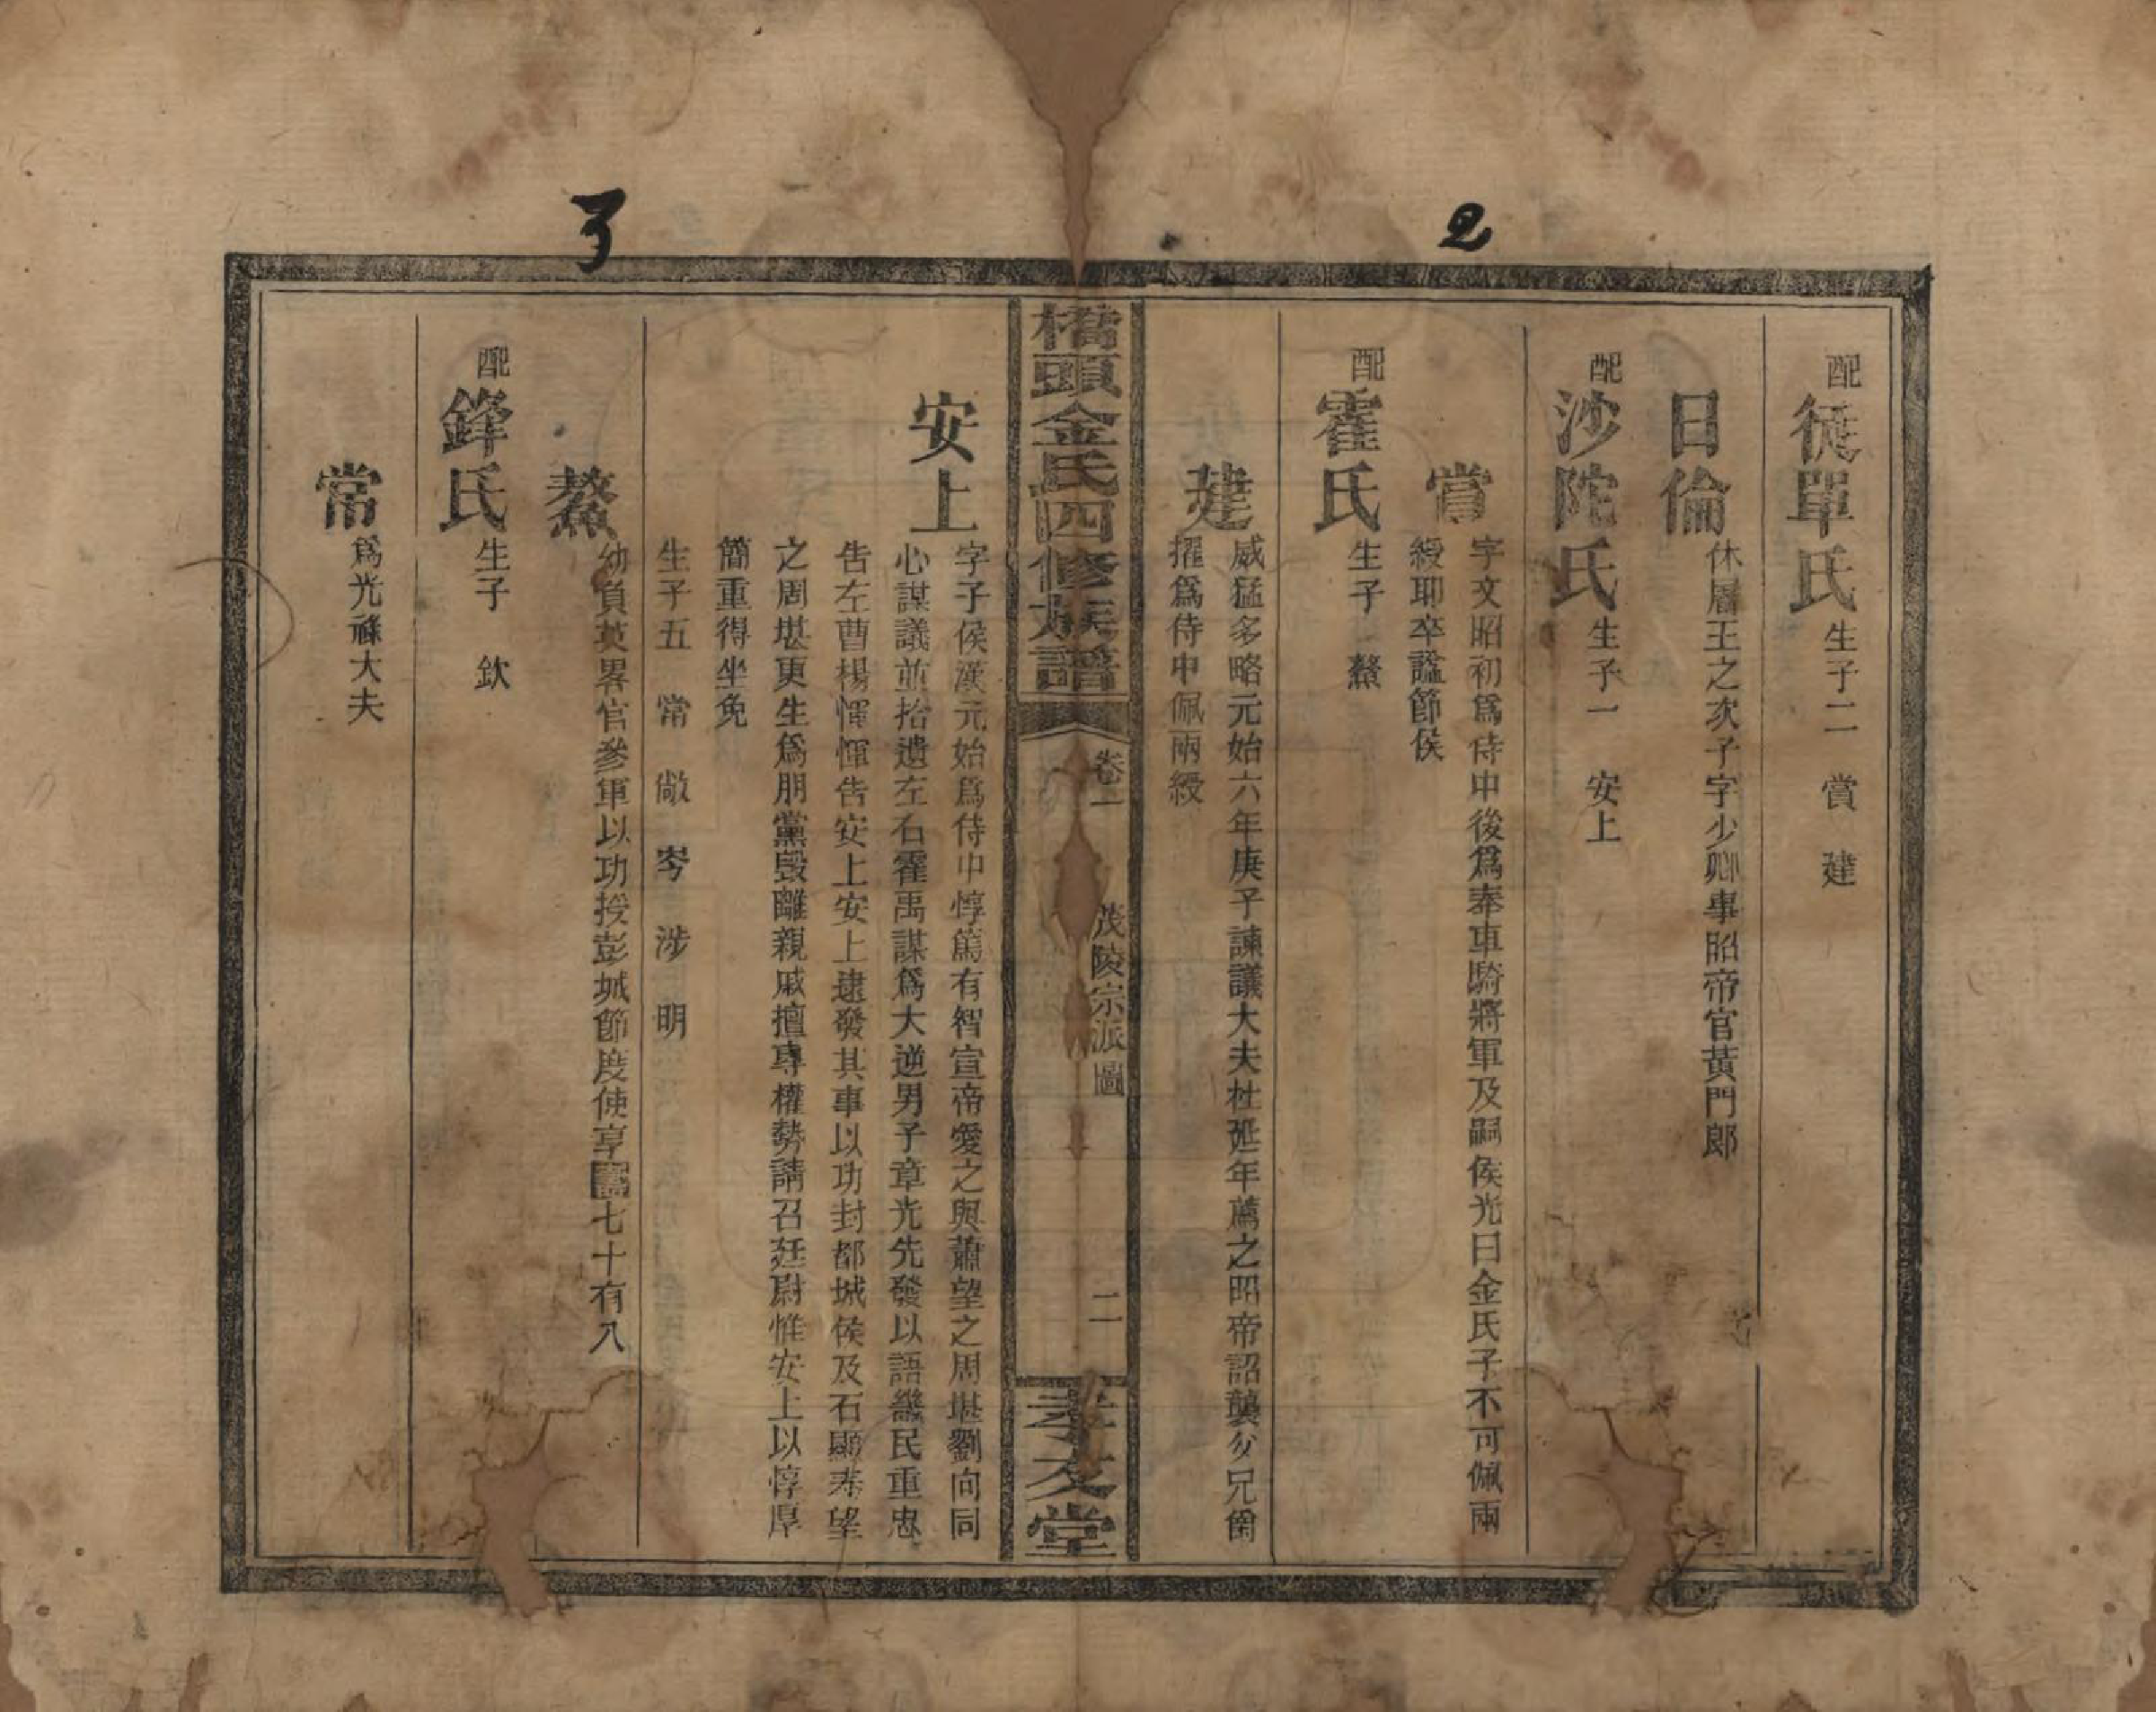 2
3
配 徒單氏 生子二 賞 建
日倫 休屠王之次子字少卿事昭帝官黃門郎
配 沙陀氏 生子一 安上
賞 字文昭初爲侍中後爲奉車騎將軍及嗣侯光曰金氏子不可佩兩
綬耶卒諡節侯
配 霍氏 生子 鰲
建 威猛多略元始六年庚子諫議大夫杜延年薦之昭帝詔襲父兄爵
擢爲侍中佩兩綬
橋頭金氏四修族譜 卷一 茂陵宗派圖 二 孝友堂
安上 字子侯漢元始爲侍中惇篤有智宣帝愛之與蕭望之周堪劉向同
心謀議並拾遺左右霍禹謀爲大逆男子章光先發以語幾民重忠
告左曹楊惲惲告安上安上逮發其事以功封都城侯及石顯奏望
之周堪更生爲朋黨毀離親戚擅專權勢請召廷尉惟安上以惇厚
簡重得坐免
生子五 常 敞 岑 涉 明
鰲 幼負英畧官參軍以功授彭城節度使享壽七十有八
配 鋒氏 生子 欽
常 爲光祿大夫